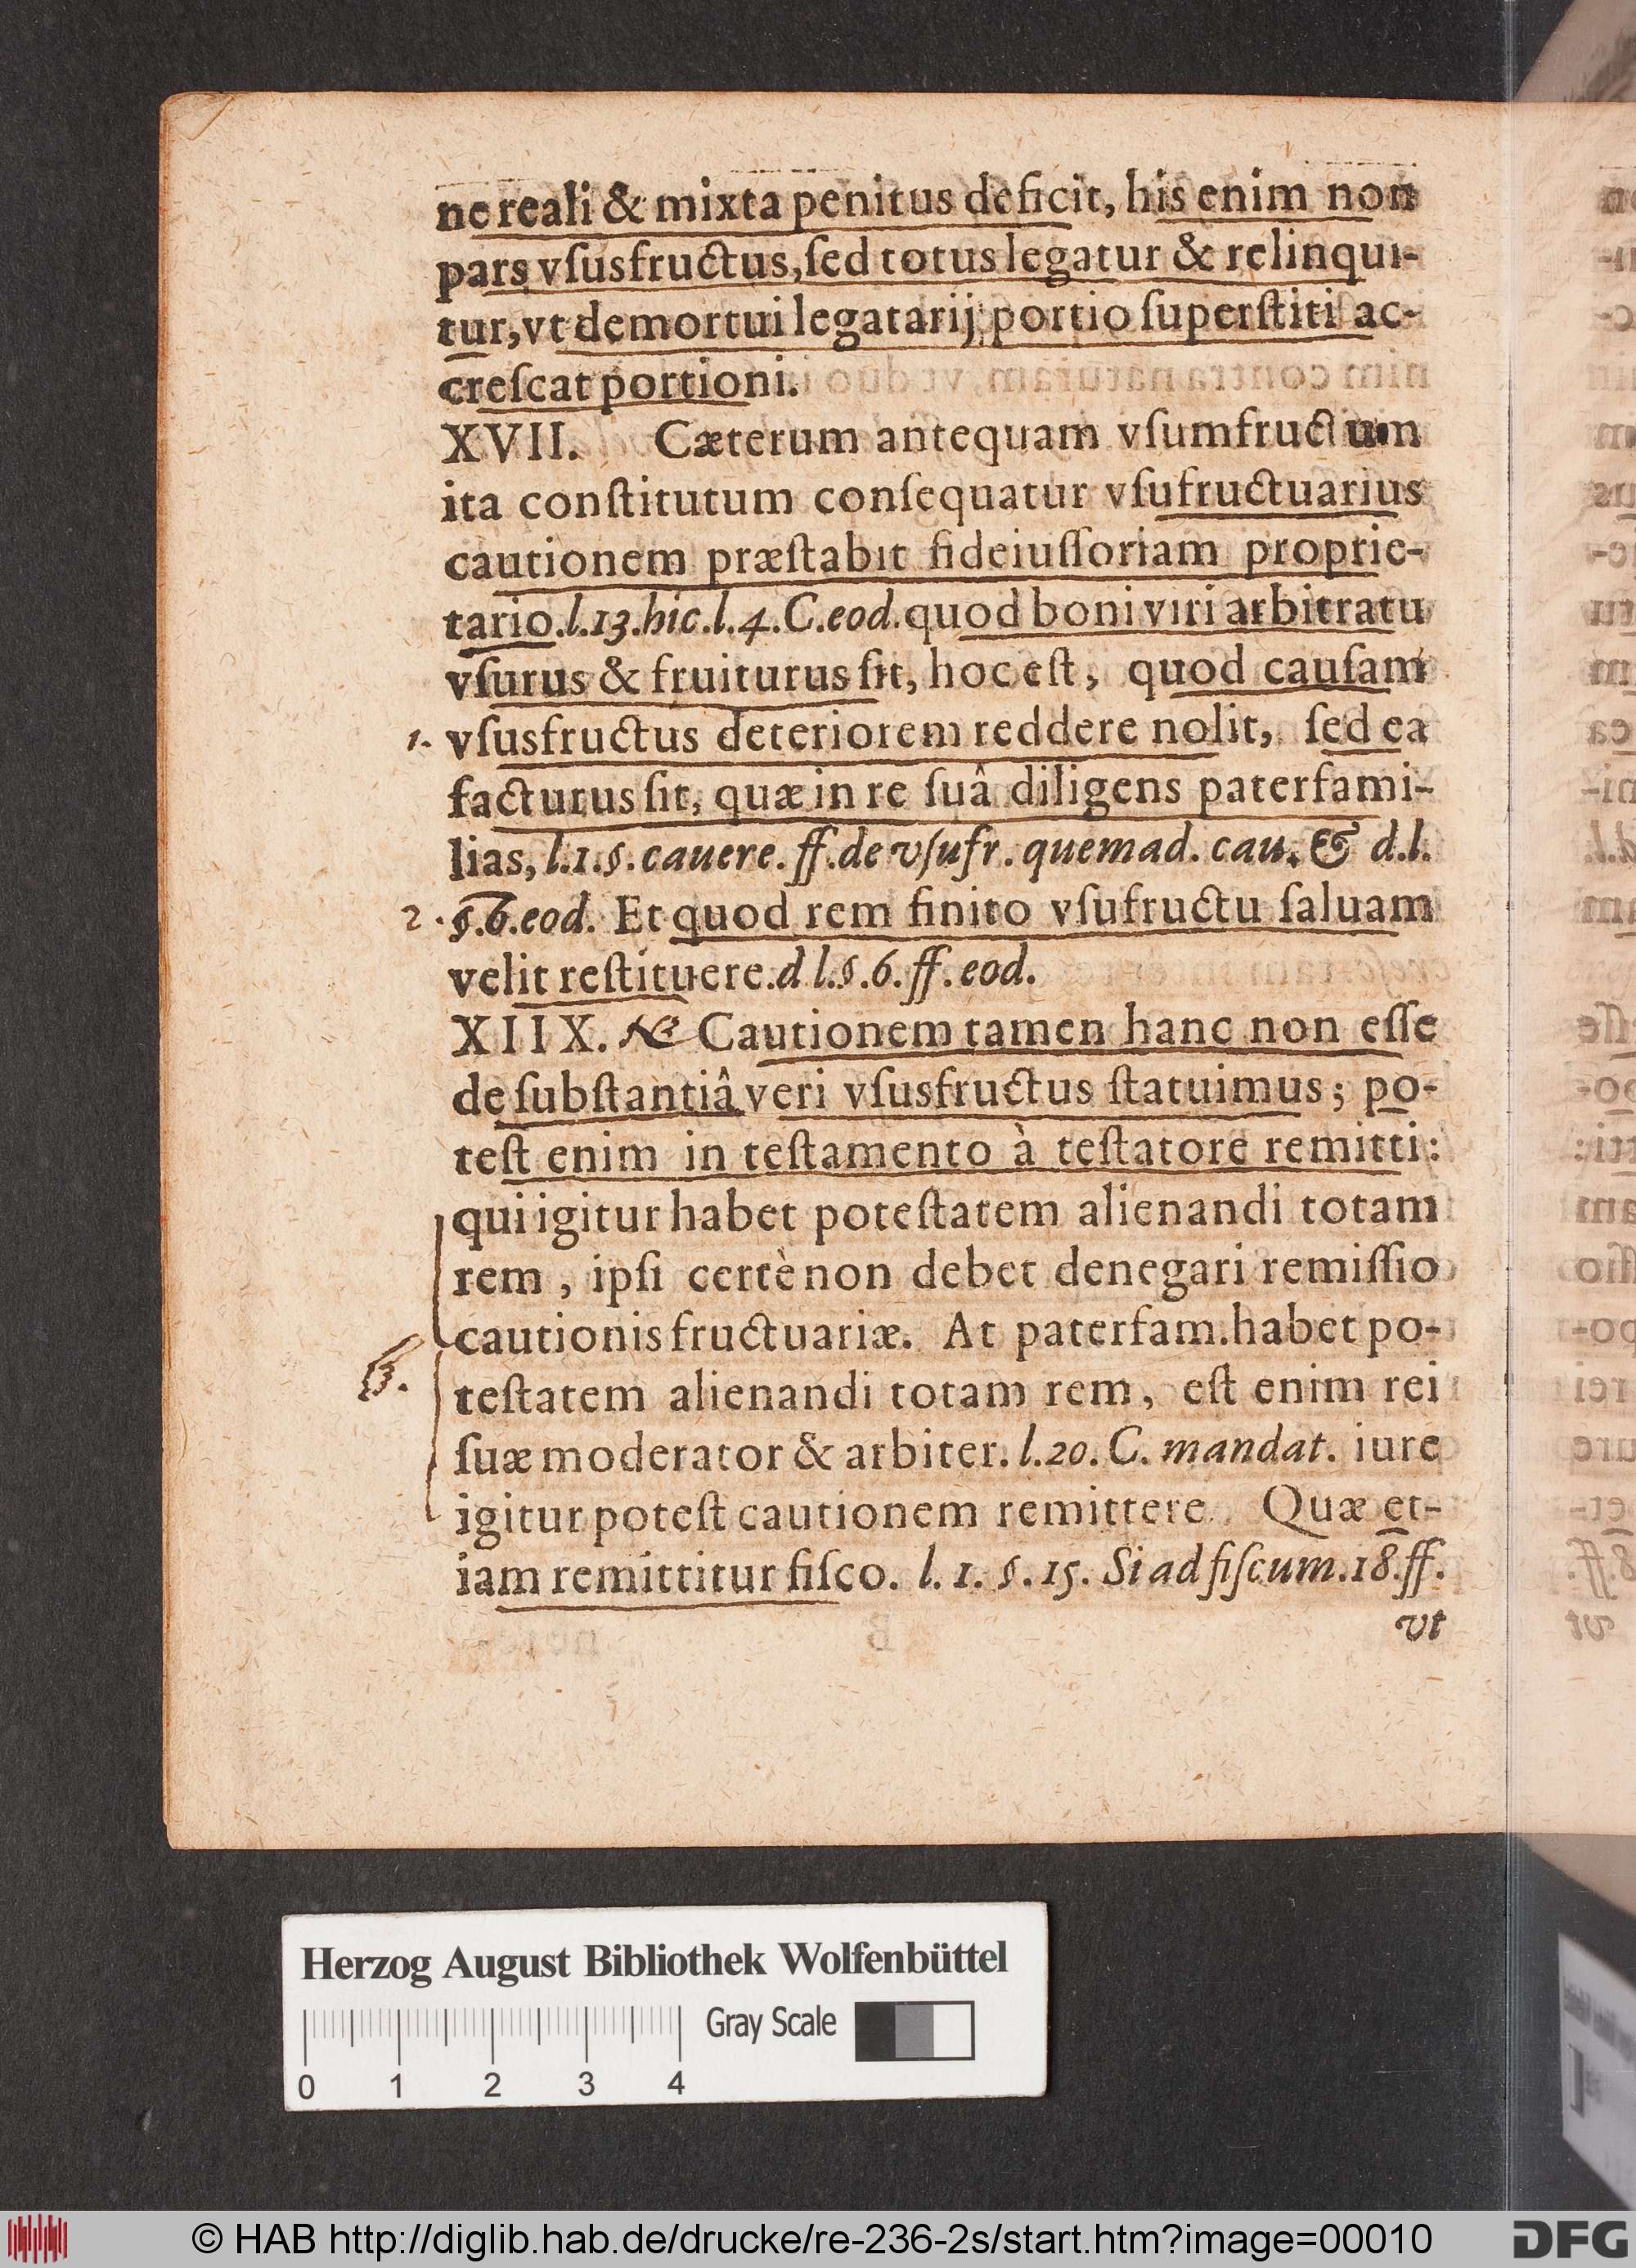 ne reali & mixta penitus deficit, his enim non
pars vſusfructus, ſed totus legatur & relinqui-
tur, vt demortui legatarij portio ſuperſtiti ac-
creſcat portioni.
XVII. Cæterum antequam vſumfructum
ita conſtitutum conſequatur vſufructuarius
cautionem præſtabit fideiuſſoriam proprie-
tario. l.13. hic. l. 4. C. eod. quod boni viri arbitratu
vſurus & fruiturus ſit, hoc eſt, quod cauſam
1. vſusfructus deteriorem reddere nolit, ſed ea
facturus ſit, quæ in re ſuâ diligens paterfami-
lias, l.1. §. cauere. ff. de vſufr. quemad. cau. & d.l.
2. §.6. eod. Et quod rem finito vſufructu ſaluam
velit reſtituere. d l. §. 6. ff. eod.
XIIX. Cautionem tamen hanc non eſſe
de ſubſtantiâ veri vſusfructus ſtatuimus; po-
teſt enim in teſtamento à teſtatore remitti:
qui igitur habet poteſtatem alienandi totam
rem, ipſi certè non debet denegari remiſſio
cautionis fructuariæ. At paterfam. habet po-
teſtatem alienandi totam rem, eſt enim rei
ſuæ moderator & arbiter. l. 20. C. mandat. iure
igitur poteſt cautionem remittere. Quæ et-
iam remittitur fiſco. l. 1. §. 15. Si ad fiſcum. 18. ff.
vt
Herzog August Bibliothek Wolfenbüttel
Gray Scale
0 1 2 3 4
© HAB http://diglib.hab.de/drucke/re-236-2s/start.htm?image=00010
DFG